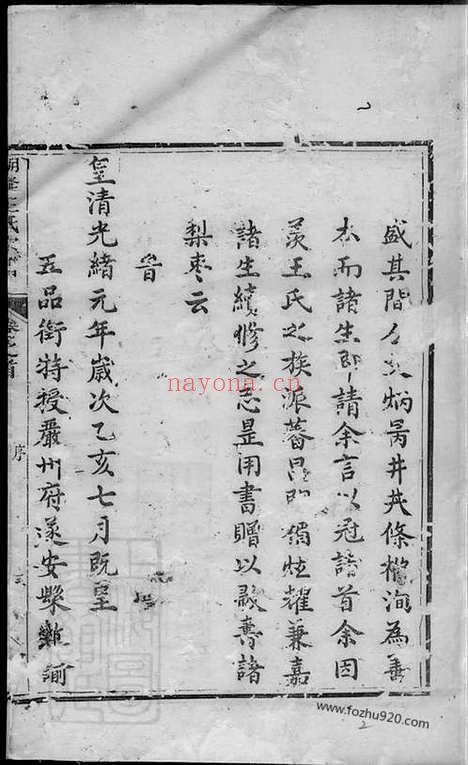 盛其間人文炳焉井井條橺洵為善
本而諸生即請余言以冠譜首余因
羨王氏之族派蕃昌即獨炫耀兼嘉
諸生續修之志是用書贈以敭壽諸
梨枣云
旹
皇清光緒元年歲次乙亥七月既望
五品銜特授嚴州府遂安縣
序
nayona.cn
www.fozhu920.com
2